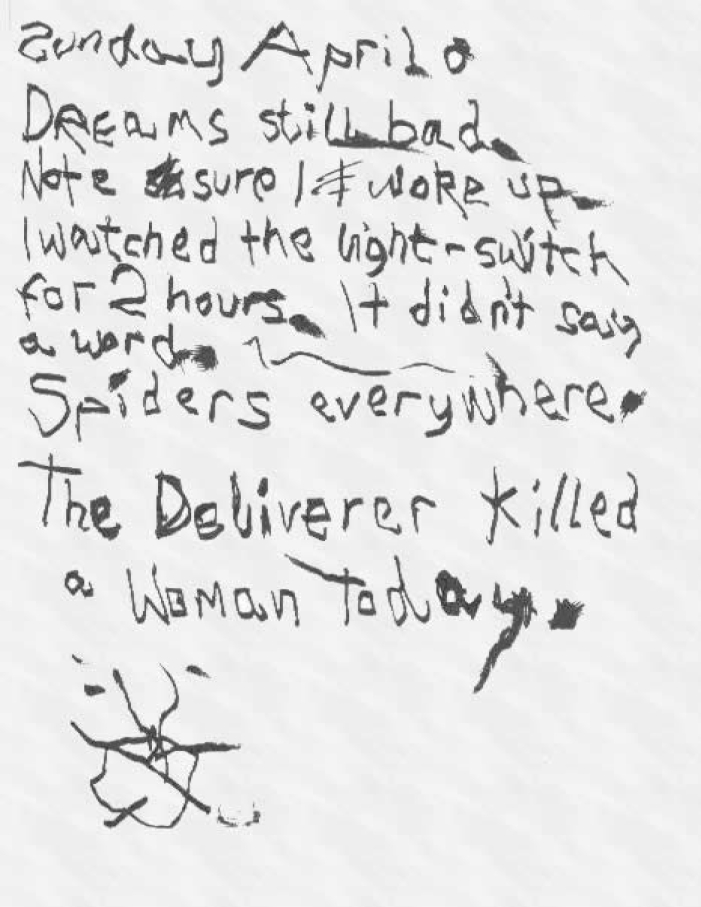 Sunday April 8
DREAMS still bad.
Note sure I woke up.
I watched the light-switch
for 2 hours. It didn't say
a word.
Spiders everywhere.
The Deliverer killed
a Woman today.